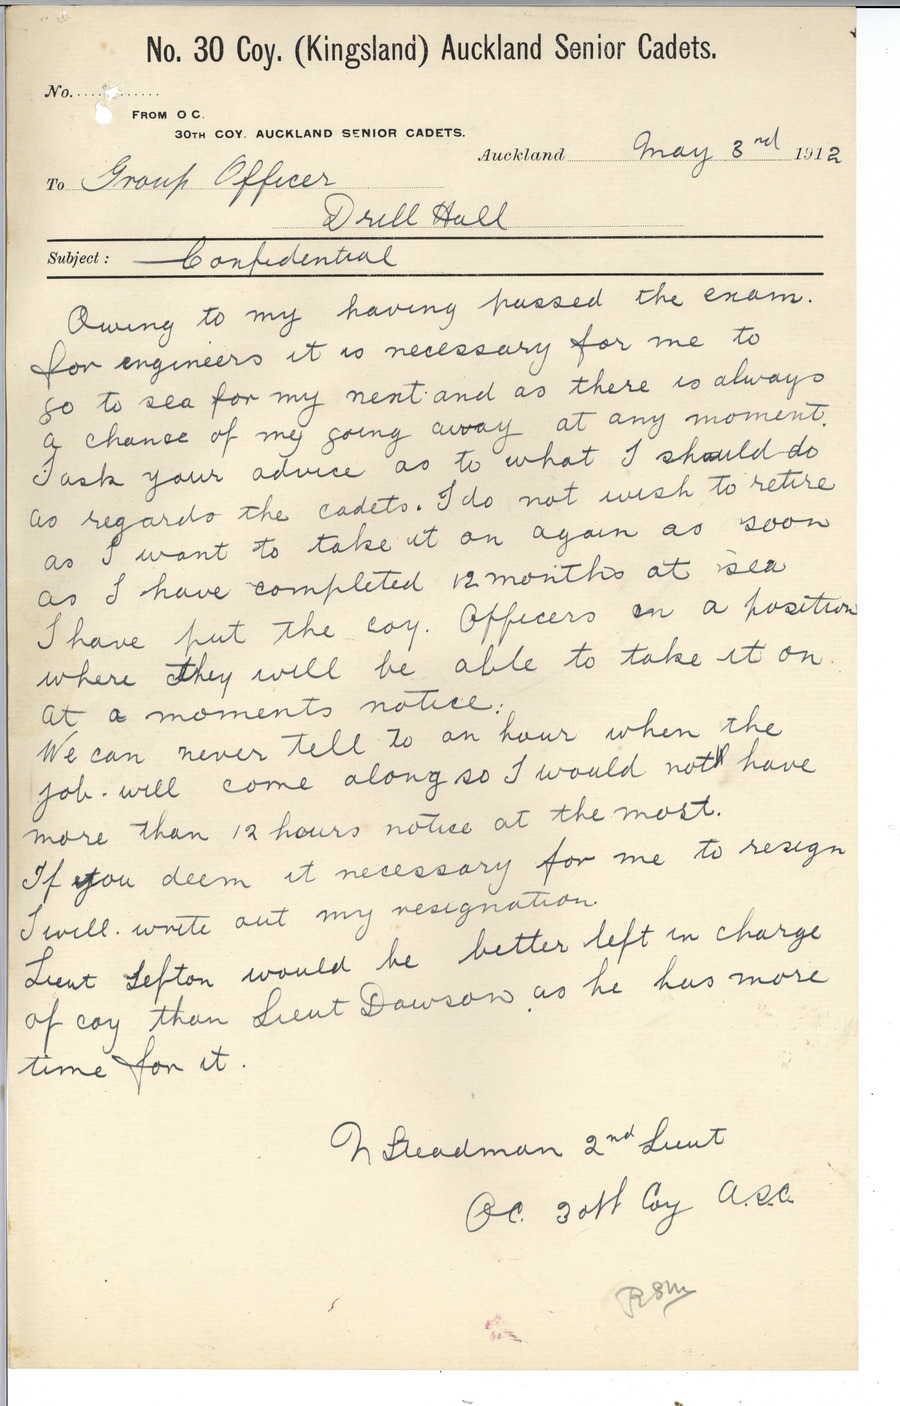 No. 30 Coy. (Kingsland) Auckland Senior Cadets.
No...........
FROM O C.
30TH COY. AUCKLAND SENIOR CADETS.
Auckland May 3rd 1912
To Group Officer
Drill Hall
Subject: Confidential
Owing to my having passed the exam.
for engineers it is necessary for me to
go to sea for my next and as there is always
a chance of me going away at any moment.
I ask your advice as to what I should do
as regards the cadets. I do not wish to retire
as I want to take it on again as soon
as I have completed 12 months at sea
I have put the coy. Officers in a position
where they will be able to take it on
at a moments notice.
We can never tell to an hour when the
job will come along so I would not have
more than 12 hours notice at the most.
If you deem it necessary for me to resign
I will write out my resignation.
Lieut Sefton would be better left in charge
of coy than Lieut Dawson as he has more
time for it.
Steadman 2nd Lieut
OC. 30th Coy A.S.C.
RSM